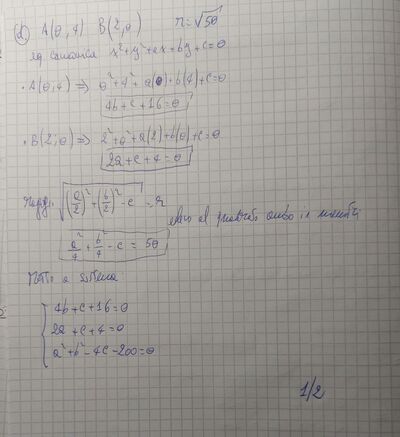 d) A(0,4) B(2,0) r=√50
eq canonica x²+y²+ax+by+c=0
• A(0,4) ⇒ 0²+4²+a(0)+b(4)+c=0
4b+c+16=0
• B(2,0) ⇒ 2²+0²+a(2)+b(0)+c=0
2a+c+4=0
√((a/2)²+(b/2)²-c) = r
elevo al quadrato ambo i membri
a²/4+b²/4-c=50
Metto a sistema
4b+c+16=0
2a+c+4=0
a²+b²-4c-200=0
1/2